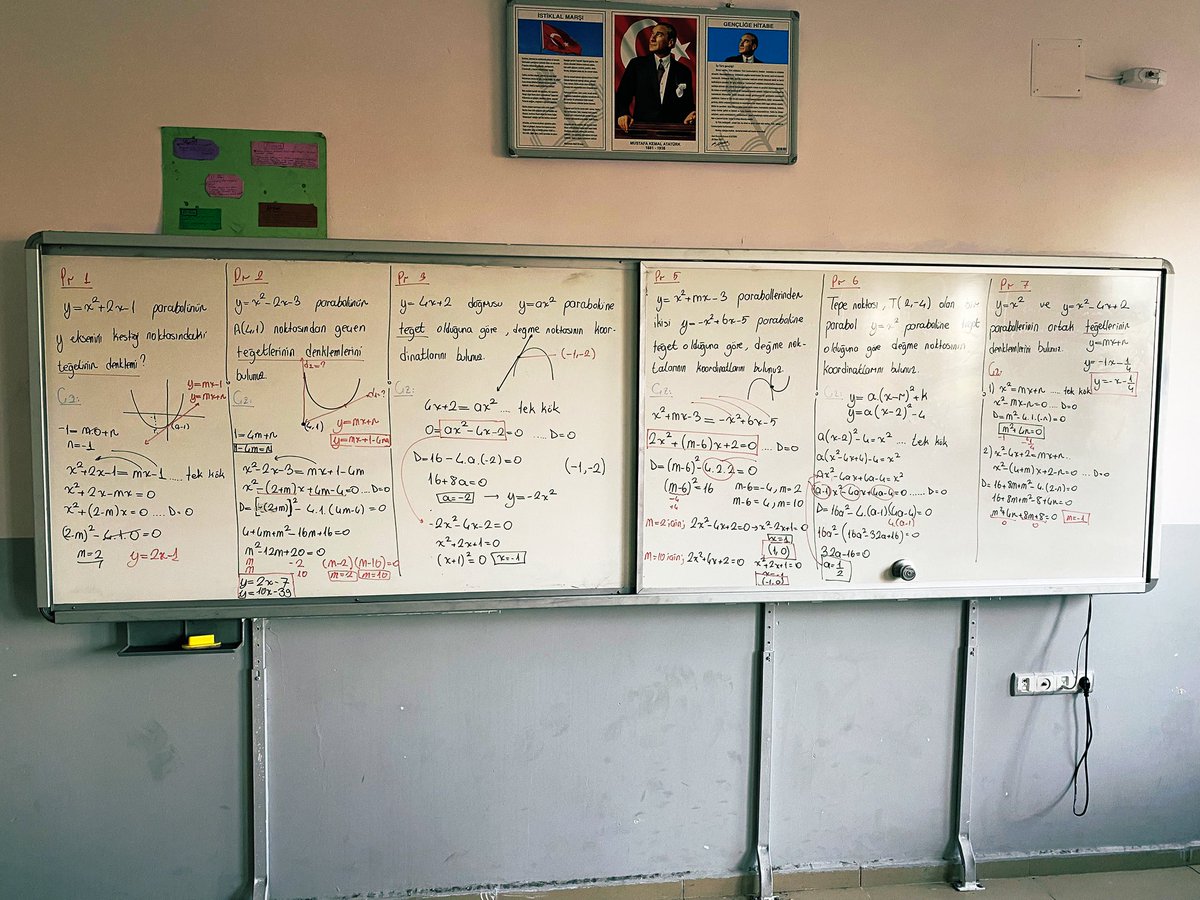 İSTİKLAL MARŞI
GENÇLİĞE HİTABE
MUSTAFA KEMAL ATATÜRK
1881 - 1938
Pr 1
y=x²+2x-1 parabolünün
y eksenini kestiği noktasındaki
teğetinin denklemi?
Çöz:
y=mx-1
y=mx+n
-1
(0,-1)
-1=m.0+n
n=-1
x²+2x-1=mx-1.... tek kök
x²+2x-mx=0
x²+(2-m)x=0 .... D=0
(2-m)²-4.1.0=0
m=2 y=2x-1
Pr 2
y=x²-2x-3 parabolünün
A(4,1) noktasından geçen
teğetlerinin denklemlerini
bulunuz.
d₂=?
d₁=?
Çöz:
(4,1)
y=mx+n
y=mx+1-4m
1=4m+n
1-4m=n
x²-2x-3=mx+1-4m
x²-(2+m)x+4m-4=0...D=0
D=[-(2+m)]²-4.1(4m-4)=0
4+4m+m²-16m+16=0
m²-12m+20=0
m -2 (m-2)(m-10)=0
m 10 m=2 m=10
y=2x-7
y=10x-39
Pr 3
y=4x+2 doğrusu y=ax² parabolüne
teğet olduğuna göre, değme noktasının koor-
dinatlarını bulunuz.
(-1,-2)
Çöz:
4x+2=ax² .... tek kök
0=ax²-4x-2=0 ....D=0
D=16-4.a.(-2)=0
(-1,-2)
16+8a=0
a=-2 → y=-2x²
-2x²-4x-2=0
x²+2x+1=0
(x+1)²=0 x=-1
Pr 5
y=x²+mx-3 parabollerinden
ikisi y=-x²+6x-5 parabolüne
teğet olduğuna göre, değme nok-
talarının koordinatlarını bulunuz.
Çöz:
x²+mx-3=-x²+6x-5
2x²+(m-6)x+2=0 ....D=0
D=(m-6)²-4.2.2=0
(m-6)²=16 m-6=-4, m=2
-4
+4
m-6=4, m=10
m=2 için; 2x²-4x+2=0→x²-2x+1=0
x=1
(1,0)
m=10 için; 2x²+4x+2=0 x²+2x+1=0
x=-1
(-1,0)
Pr 6
Tepe noktası, T(2,-4) olan bir
parabol y=x² parabolüne teğet
olduğuna göre değme noktasının
koordinatlarını bulunuz.
Çöz: y=a(x-r)²+k
y=a(x-2)²-4
a(x-2)²-4=x² .... tek kök
a(x²-4x+4)-4=x²
ax²-4ax+4a-4=x²
(a-1)x²-4ax+4a-4=0......D=0
D=16a²-4.(a-1)(4a-4)=0
4.(a-1)
16a²-(16a²-32a+16)=0
32a-16=0
a=1/2
Pr 7
y=x² ve y=x²-4x+2
parabollerinin ortak teğetlerinin
denklemlerini bulunuz.
y=mx+n
y=-1x-1/4
y=-x-1/4
Çöz:
1) x²=mx+n.... tek kök
x²-mx-n=0 ....D=0
D=m²-4.1.(-n)=0
m²+4n=0
-1 -1/4
2) x²-4x+2=mx+n..
x²-(4+m)x+2-n=0 ...D=0
D=16+8m+m²-4.(2-n)=0
16+8m+m²-8+4n=0
m²+4n+8m+8=0 m=-1
0 0